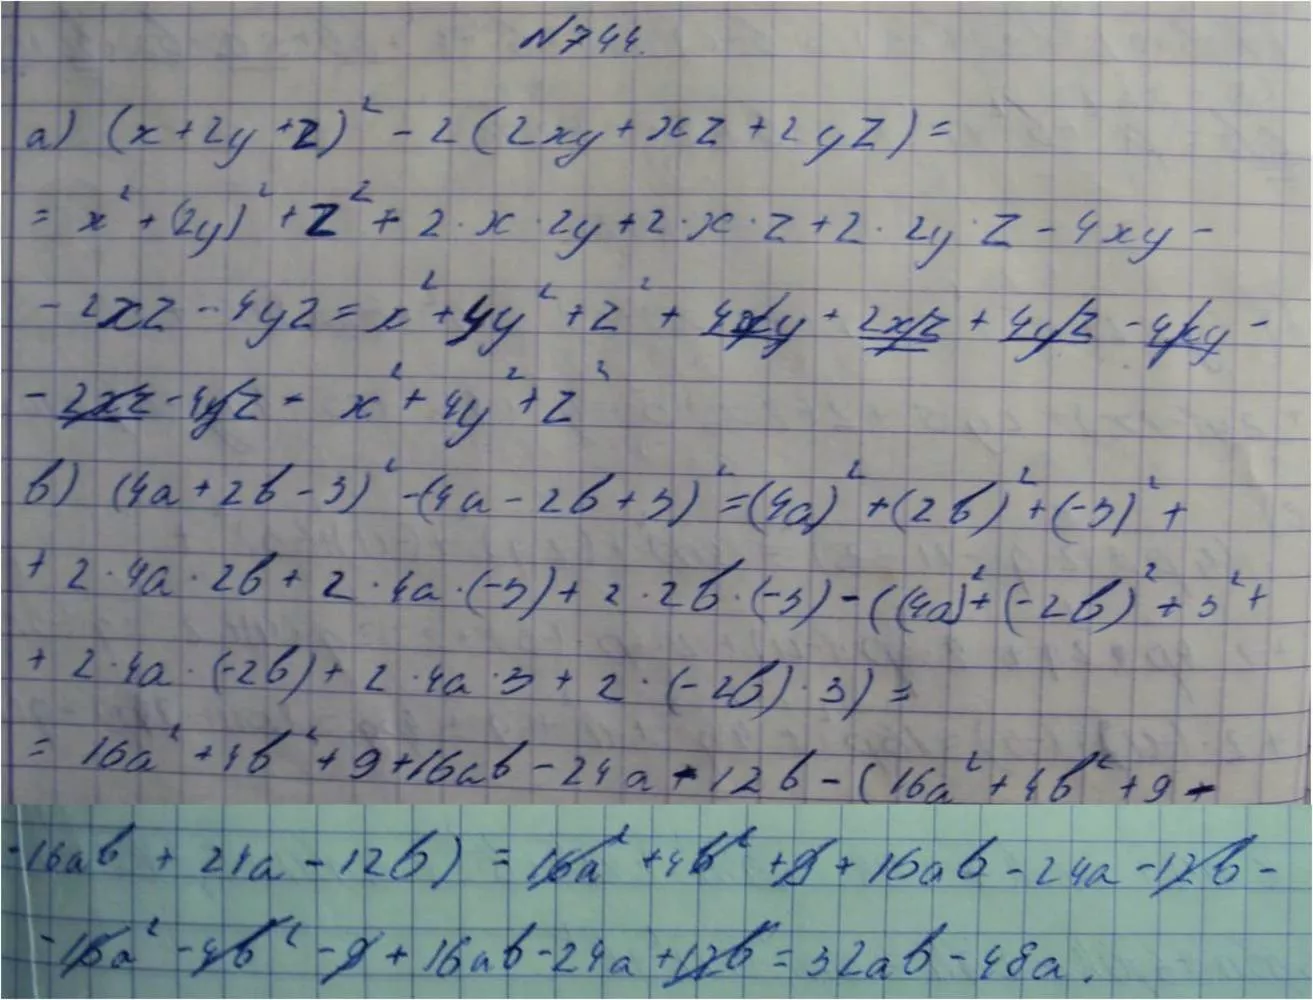 №744.
а) (x+2y+z)² - 2(2xy+xz+2yz) =
= x² + (2y)² + z² + 2·x·2y+2·x·z+2·2y·z - 4xy -
- 2xz - 4yz = x² + 4y² + z² + 4xy + 2xz + 4yz - 4xy -
- 2xz - 4yz = x² + 4y² + z²
в) (4a+2b-3)² - (4a-2b+3)² = (4a)² + (2b)² + (-3)² +
+ 2·4a·2b + 2·4a·(-3) + 2·2b·(-3) - ((4a)² + (-2b)² + 3² +
+ 2·4a·(-2b) + 2·4a·3 + 2·(-2b)·3) =
= 16a² + 4b² + 9 + 16ab - 24a - 12b - (16a² + 4b² + 9 -
- 16ab + 24a - 12b) = 16a² + 4b² + 9 + 16ab - 24a - 12b -
- 16a² - 4b² - 9 + 16ab - 24a + 12b = 32ab - 48a.